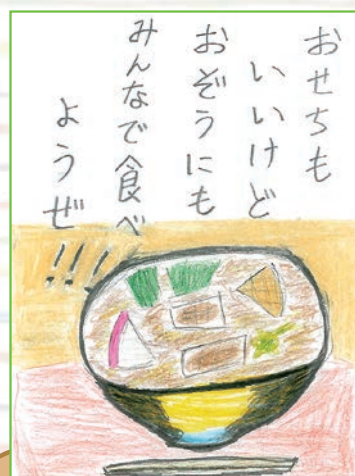 おせちも
いいけど
おぞうにも
みんなで食べ
ようぜ!!!